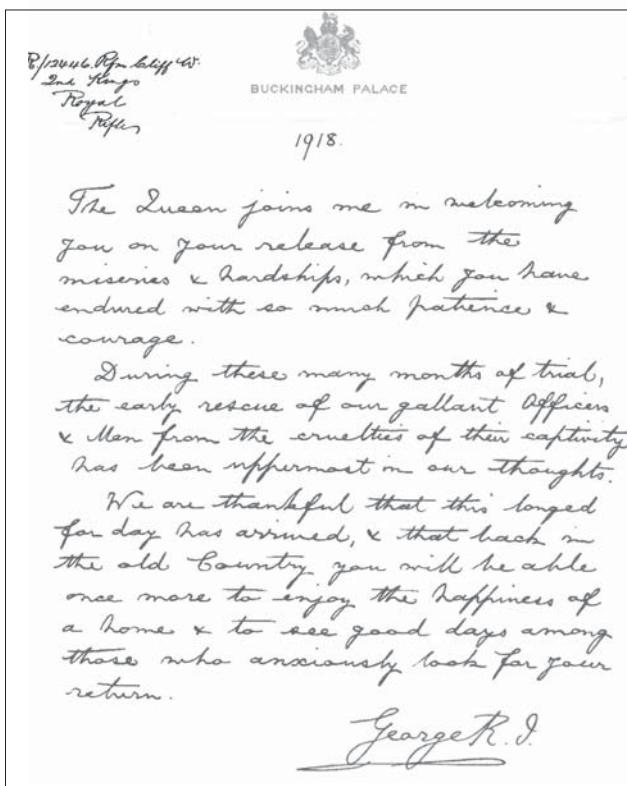 R/12446. Rfn Cliff W.
2nd Kings
Royal
Rifles
BUCKINGHAM PALACE
1918.
The Queen joins me in welcoming
you on your release from the
miseries & hardships, which you have
endured with so much patience &
courage.
During these many months of trial,
the early rescue of our gallant Officers
& Men from the cruelties of their captivity
has been uppermost in our thoughts.
We are thankful that this longed
for day has arrived, & that back in
the old Country you will be able
once more to enjoy the happiness of
a home & to see good days among
those who anxiously look for your
return.
George R.I.